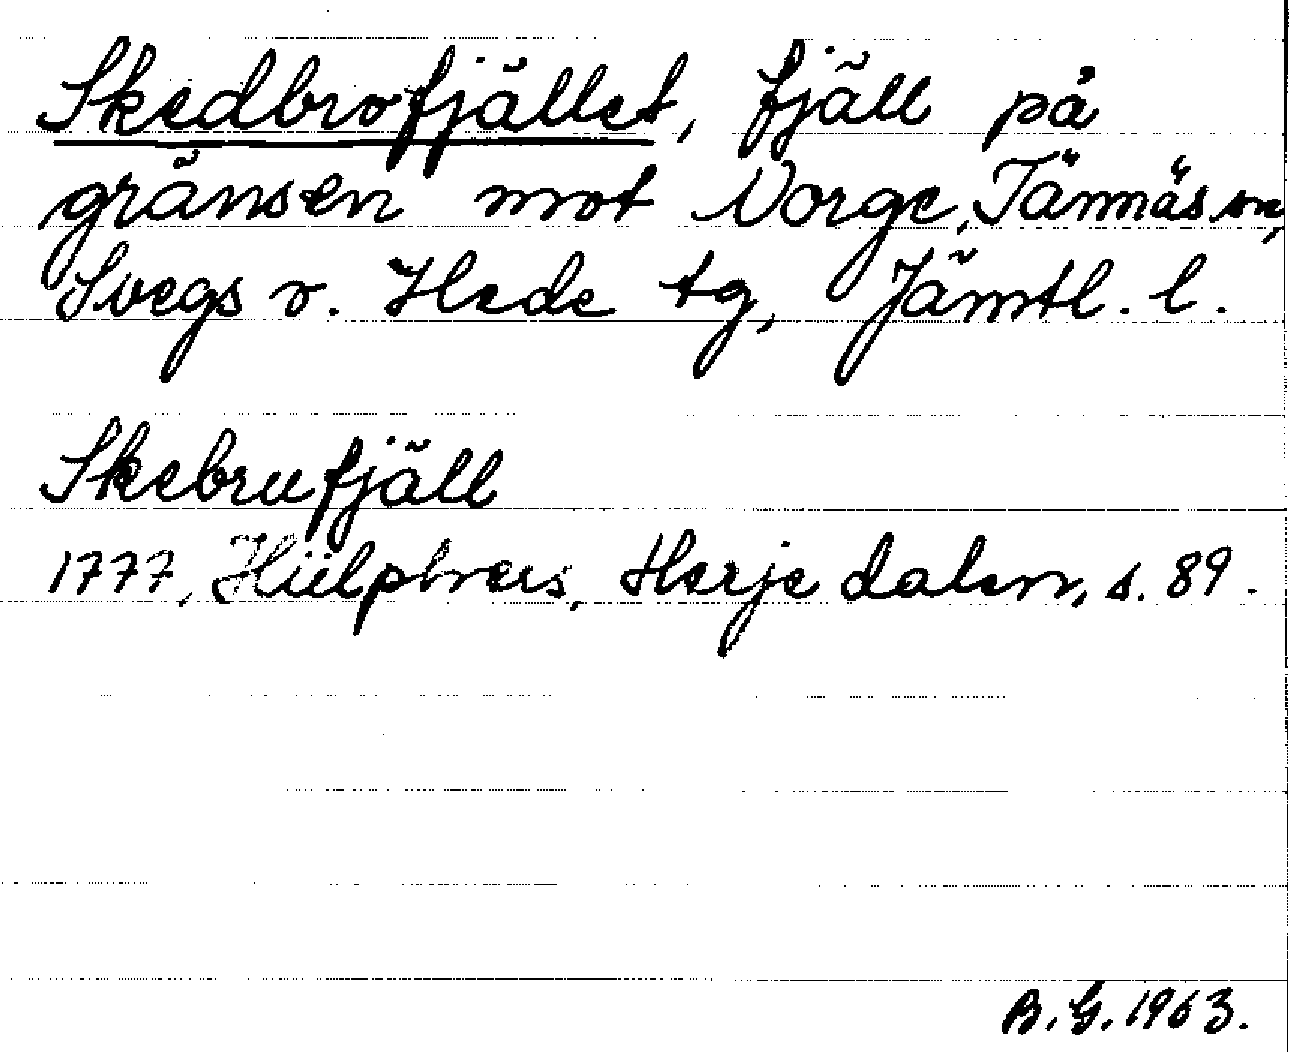 Skedbrofjället, fjäll på
gränsen mot Norge, Tännäs sn,
Svegs o. Hede tg, Jämtl. l.
Skebrufjäll
1777, Hülphers, Herjedalen, s. 89.
B.G. 1963.